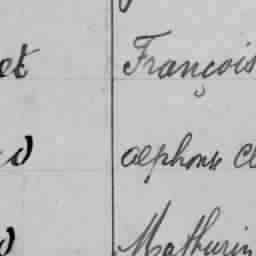 et François
d Alphonse Cl
d Mathurin